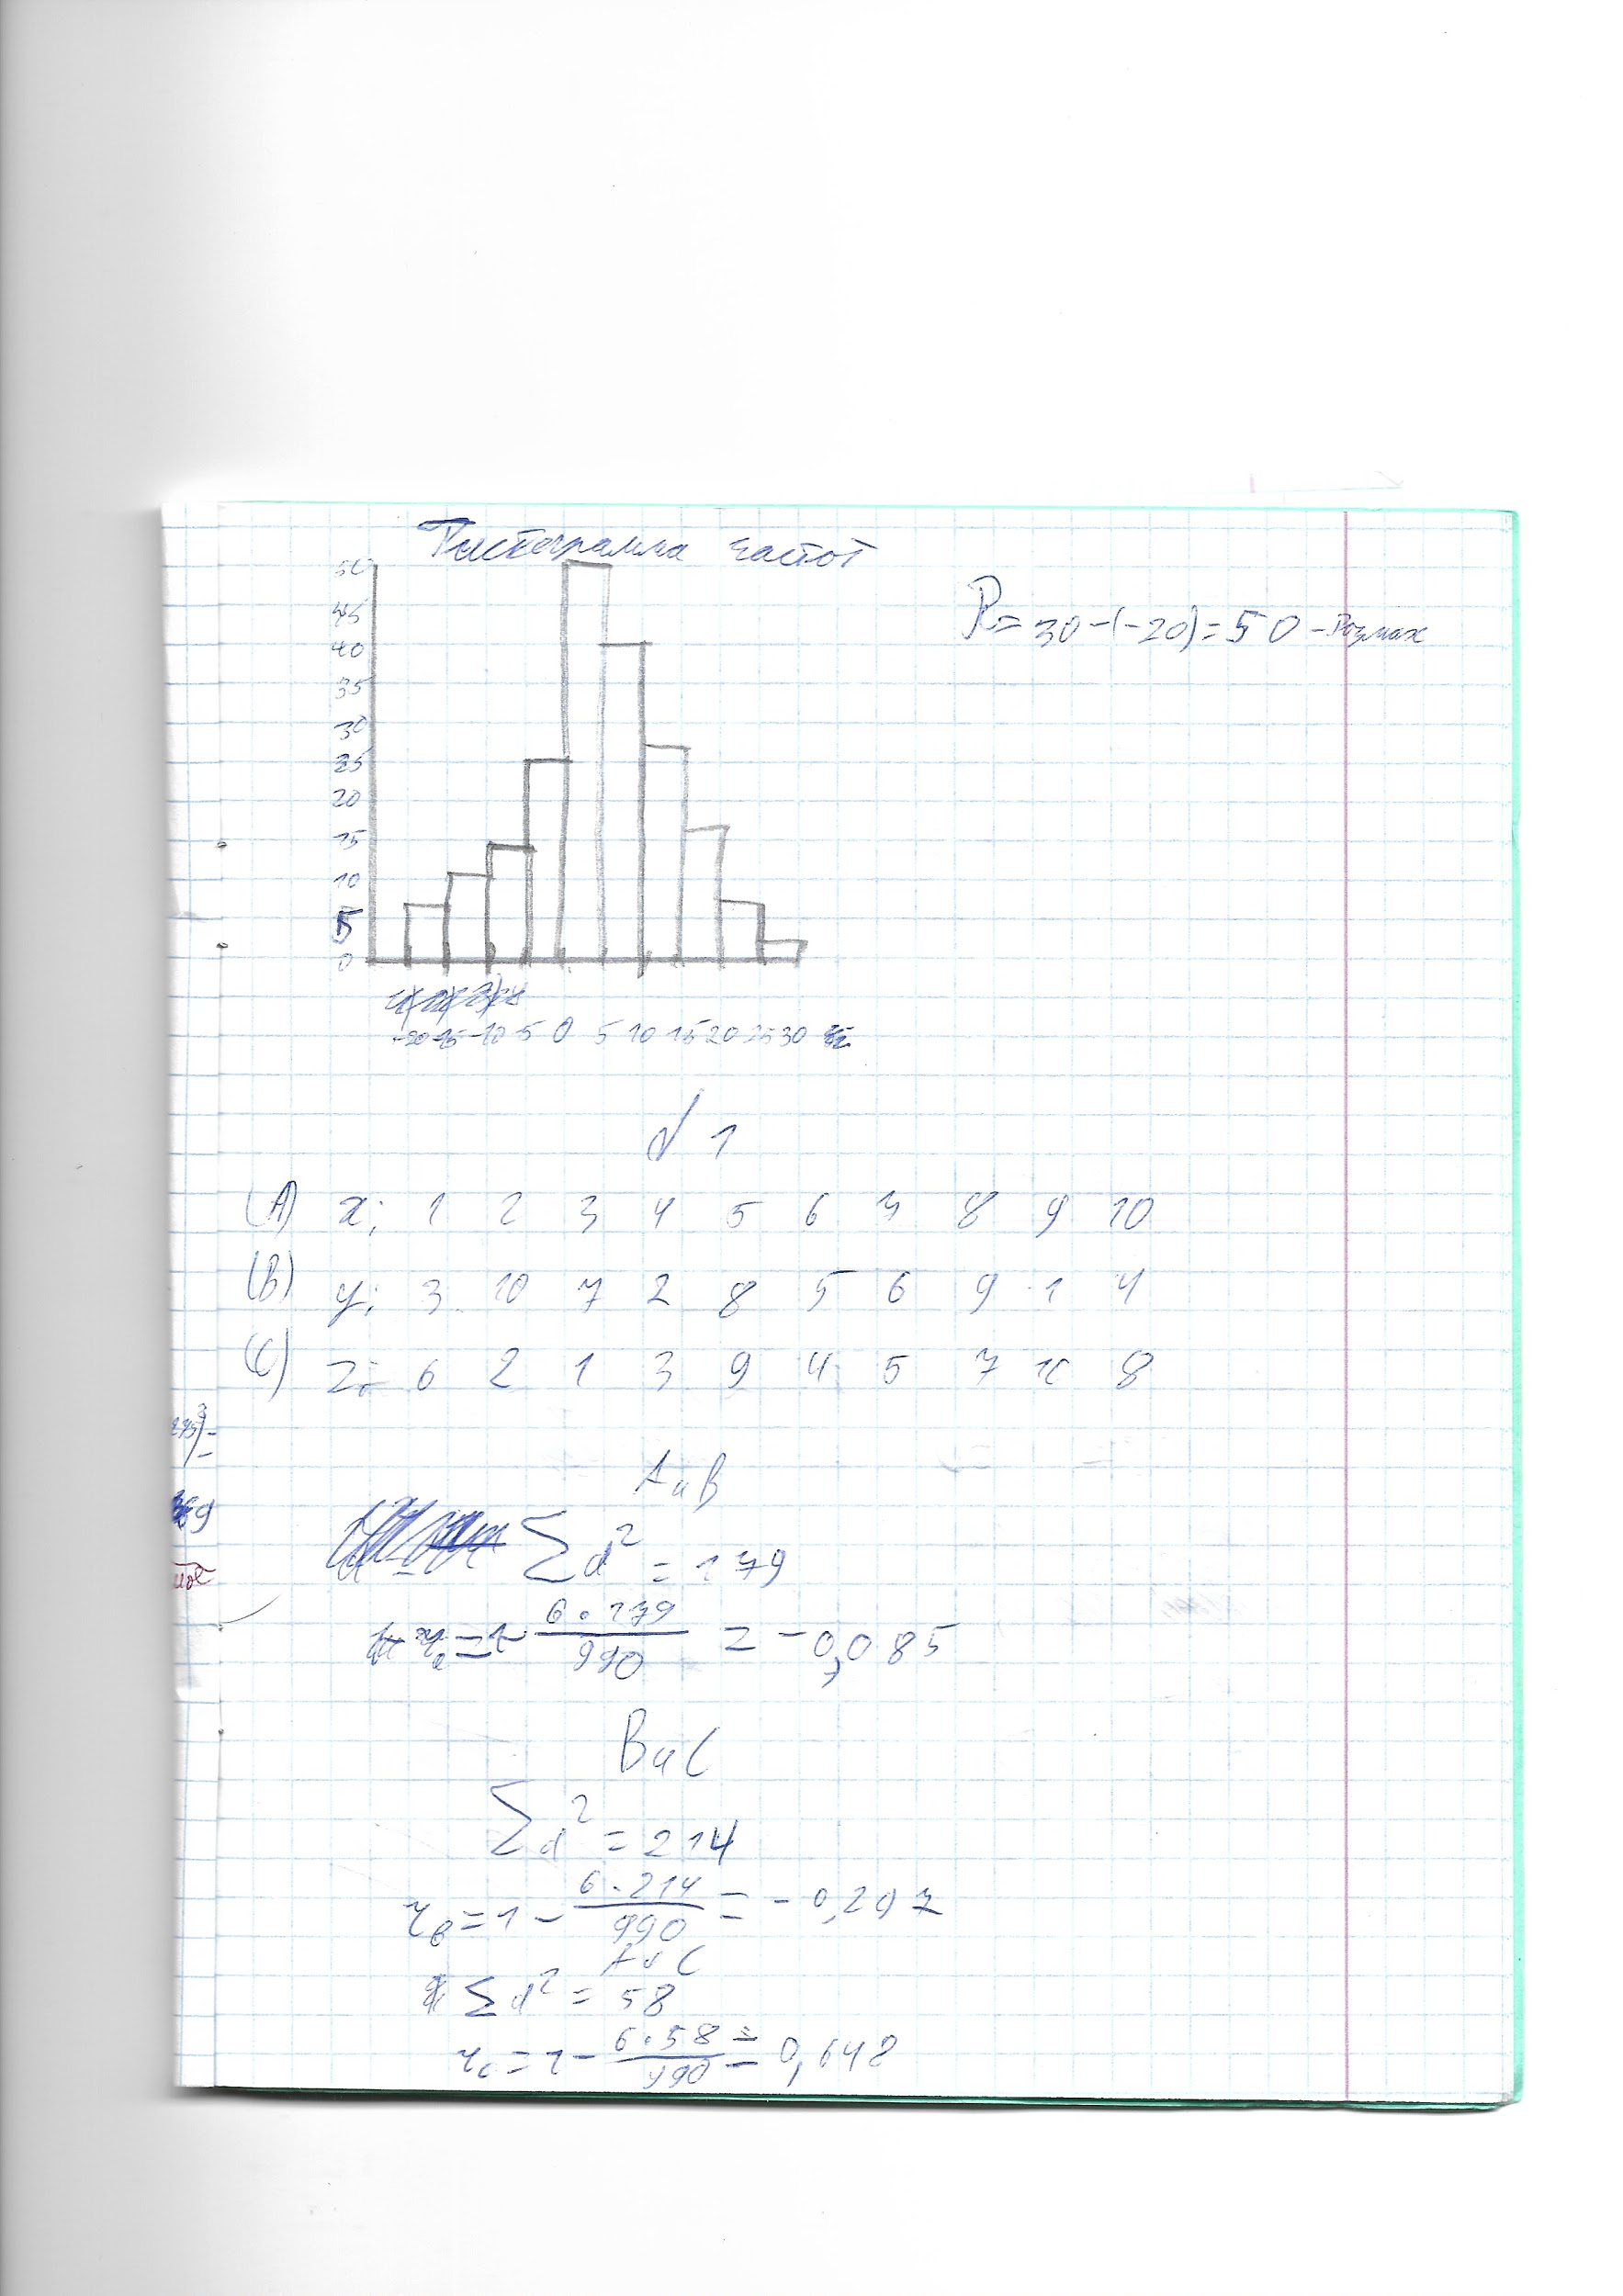 Гистограмма частот
50
45
40
35
30
25
20
15
10
5
0
R = 30 - (-20) = 50 - Размах
-20 -15 -10 -5 0 5 10 15 20 25 30
№ 1
(A) xi 1 2 3 4 5 6 7 8 9 10
(B) yi 3 10 7 2 8 5 6 9 1 4
(C) zi 6 2 1 3 9 4 5 7 10 8
A и B
∑d² = 179
= 1 - 6·179/990 = -0,085
B и C
∑d² = 214
rв = 1 - 6·214/990 = -0,297
A и C
∑d² = 58
rc = 1 - 6·58/990 = 0,648